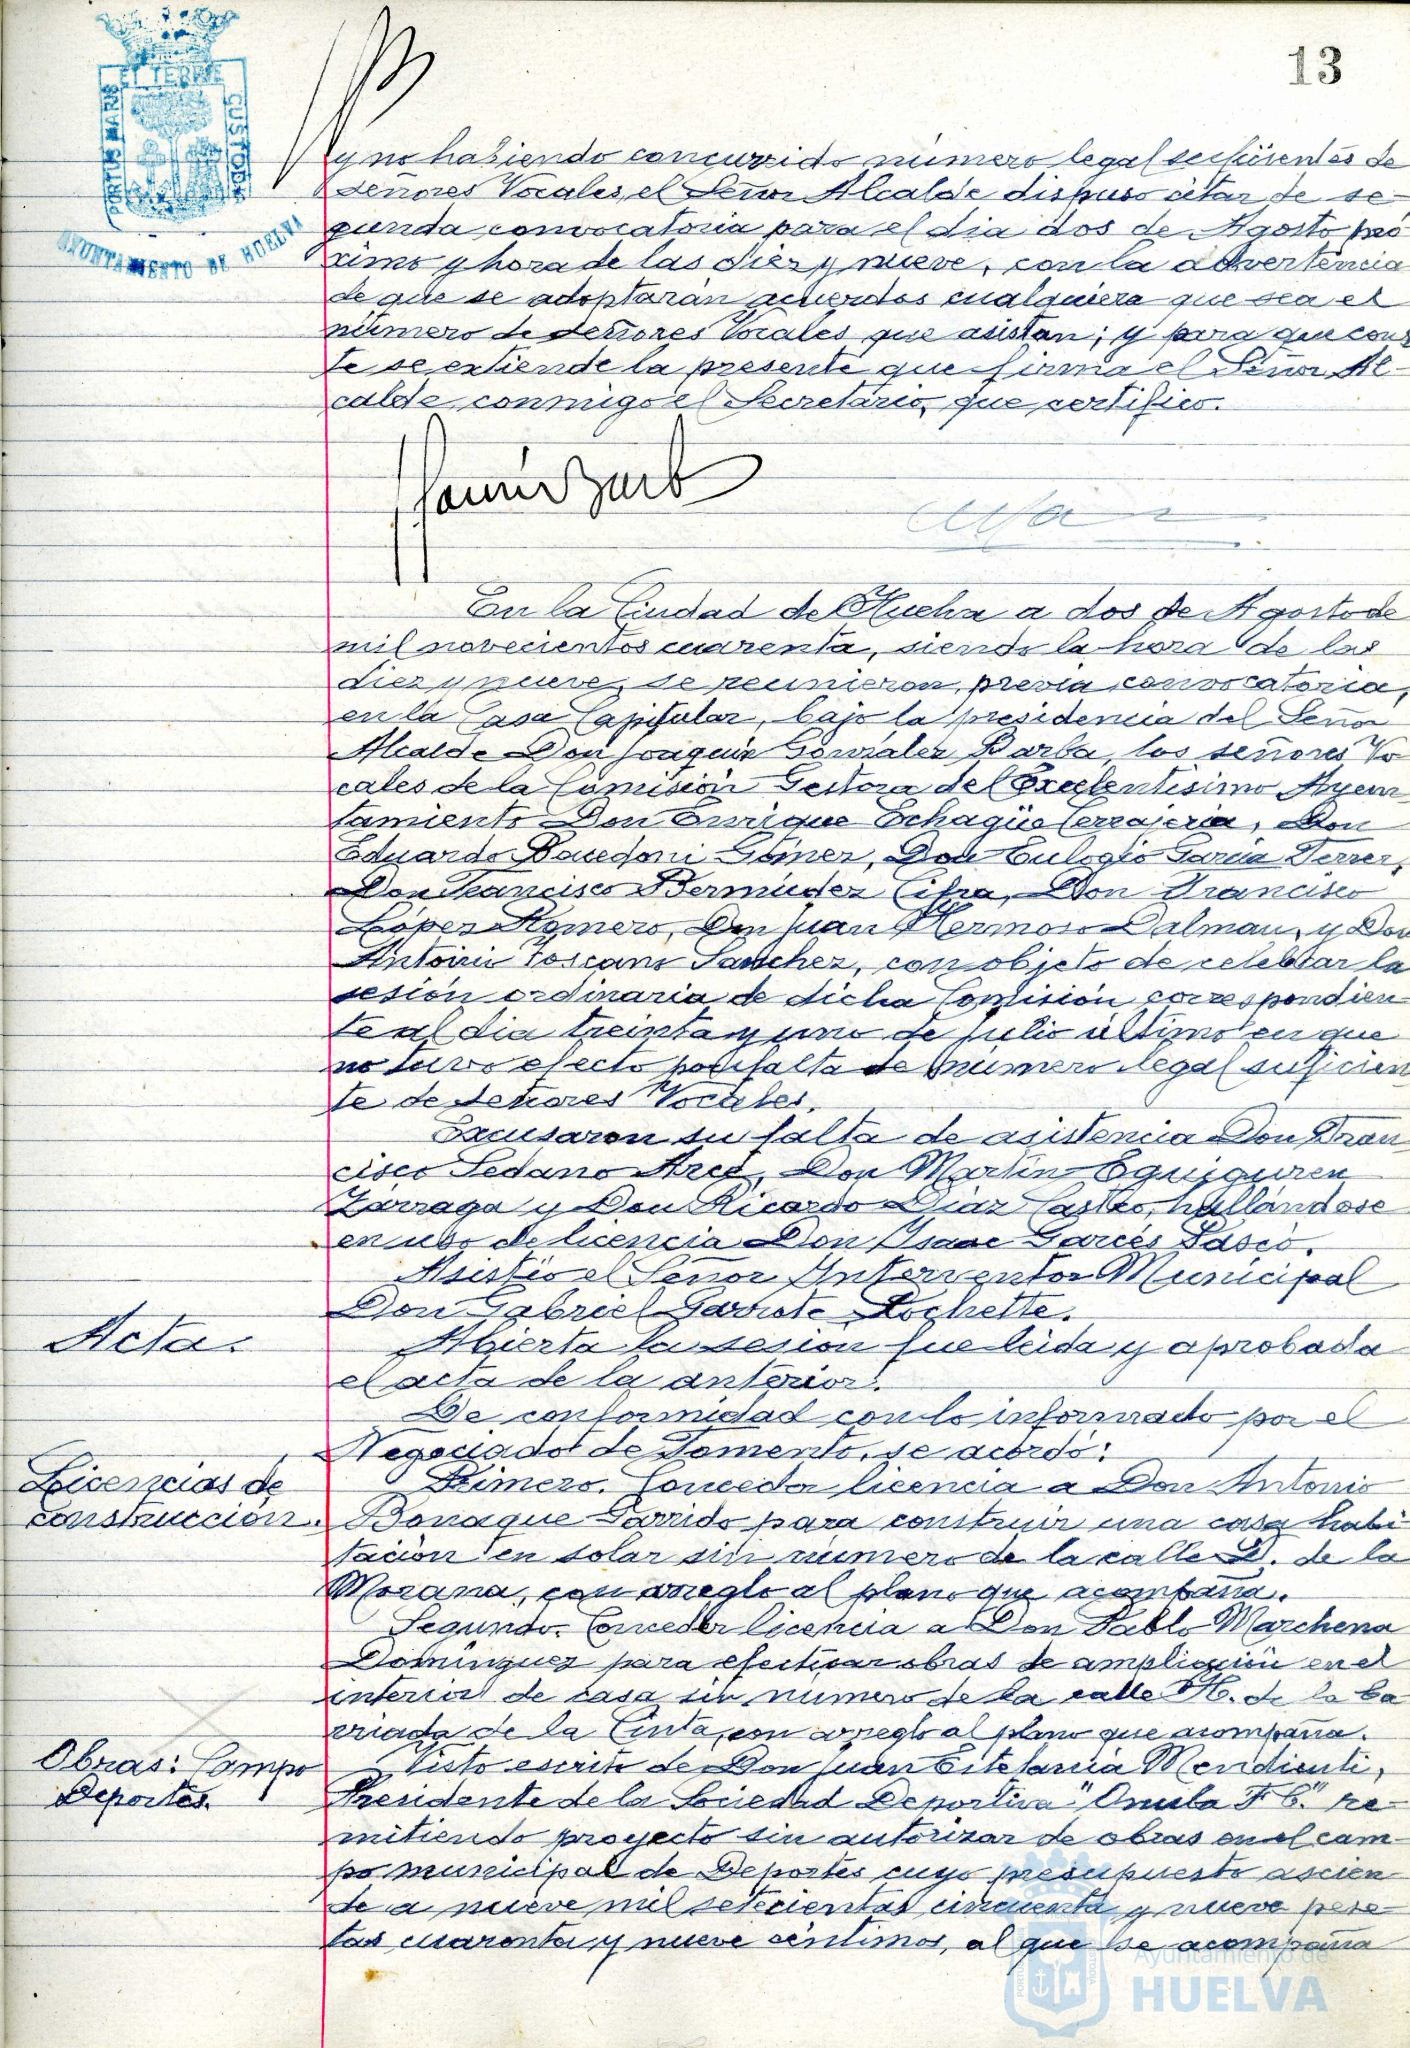 13
PORTUS MARIS ET TERRE CUSTODIA
AYUNTAMIENTO DE HUELVA
y no habiendo concurrido número legal suficientes de
señores Vocales, el Señor Alcalde dispuso citar de se-
gunda convocatoria para el dia dos de Agosto pró
ximo y hora de las diez y nueve, con la advertencia
de que se adoptarán acuerdos cualquiera que sea el
número de señores Vocales que asistan; y para que cons
te se extiende la presente que firma el Señor Al-
calde, conmigo el Secretario, que certifico.
En la Ciudad de Huelva a dos de Agosto de
mil novecientos cuarenta, siendo la hora de las
diez y nueve, se reunieron, previa convocatoria,
en la Casa Capitular, bajo la presidencia del Señor
Alcalde Don Joaquin González Barba, los señores Vo
cales de la Comisión Gestora del Excelentisimo Ayun
tamiento Don Enrique Echagüe Cerrajeria, Don
Eduardo Gómez, Don Eulogio Garcia Ferrer,
Don Francisco Bermúdez Cifra, Don Francisco
López Romero, Don Juan Hermoso Dalmau, y Don
Antonio Toscano Sanchez, con objeto de celebrar la
sesión ordinaria de dicha Comisión correspondien-
te al dia treinta y uno de Julio último en que
no tuvo efecto por falta de número legal suficien
te de señores Vocales.
Excusaron su falta de asistencia Don Fran
cisco Sedano Arce, Don Martin Eguiguren
Zárraga y Don Ricardo Diaz Castro, hallándose
en uso de licencia Don Isaac Garcés Pasció.
Asistió el Señor Interventor Municipal
Don Gabriel Garrote Rochette.
Acta.
Abierta la sesión fue leida y aprobada
el acta de la anterior.
De conformidad con lo informado por el
Negociado de Fomento, se acordó:
Licencias de
construcción.
Primero. Conceder licencia a Don Antonio
Bonaque Garrido para construir una casa habi
tación en solar sin número de la calle D. de la
Morana, con arreglo al plano que acompaña.
Segundo. Conceder licencia a Don Pablo Marchena
Dominguez para efectuar obras de ampliación en el
interior de casa sin número de la calle H. de la ba
rriada de la Cinta, con arreglo al plano que acompaña.
Obras: Campo
Deportes.
Visto escrito de Don Juan Estefania Mendicuti,
Presidente de la Sociedad Deportiva "Onuba F C." re-
mitiendo proyecto sin autorizar de obras en el cam-
po municipal de Deportes cuyo presupuesto ascien-
de a nueve mil setecientas cincuenta y nueve pese-
tas cuarenta y nueve céntimos, al que se acompaña
Ayuntamiento de
HUELVA